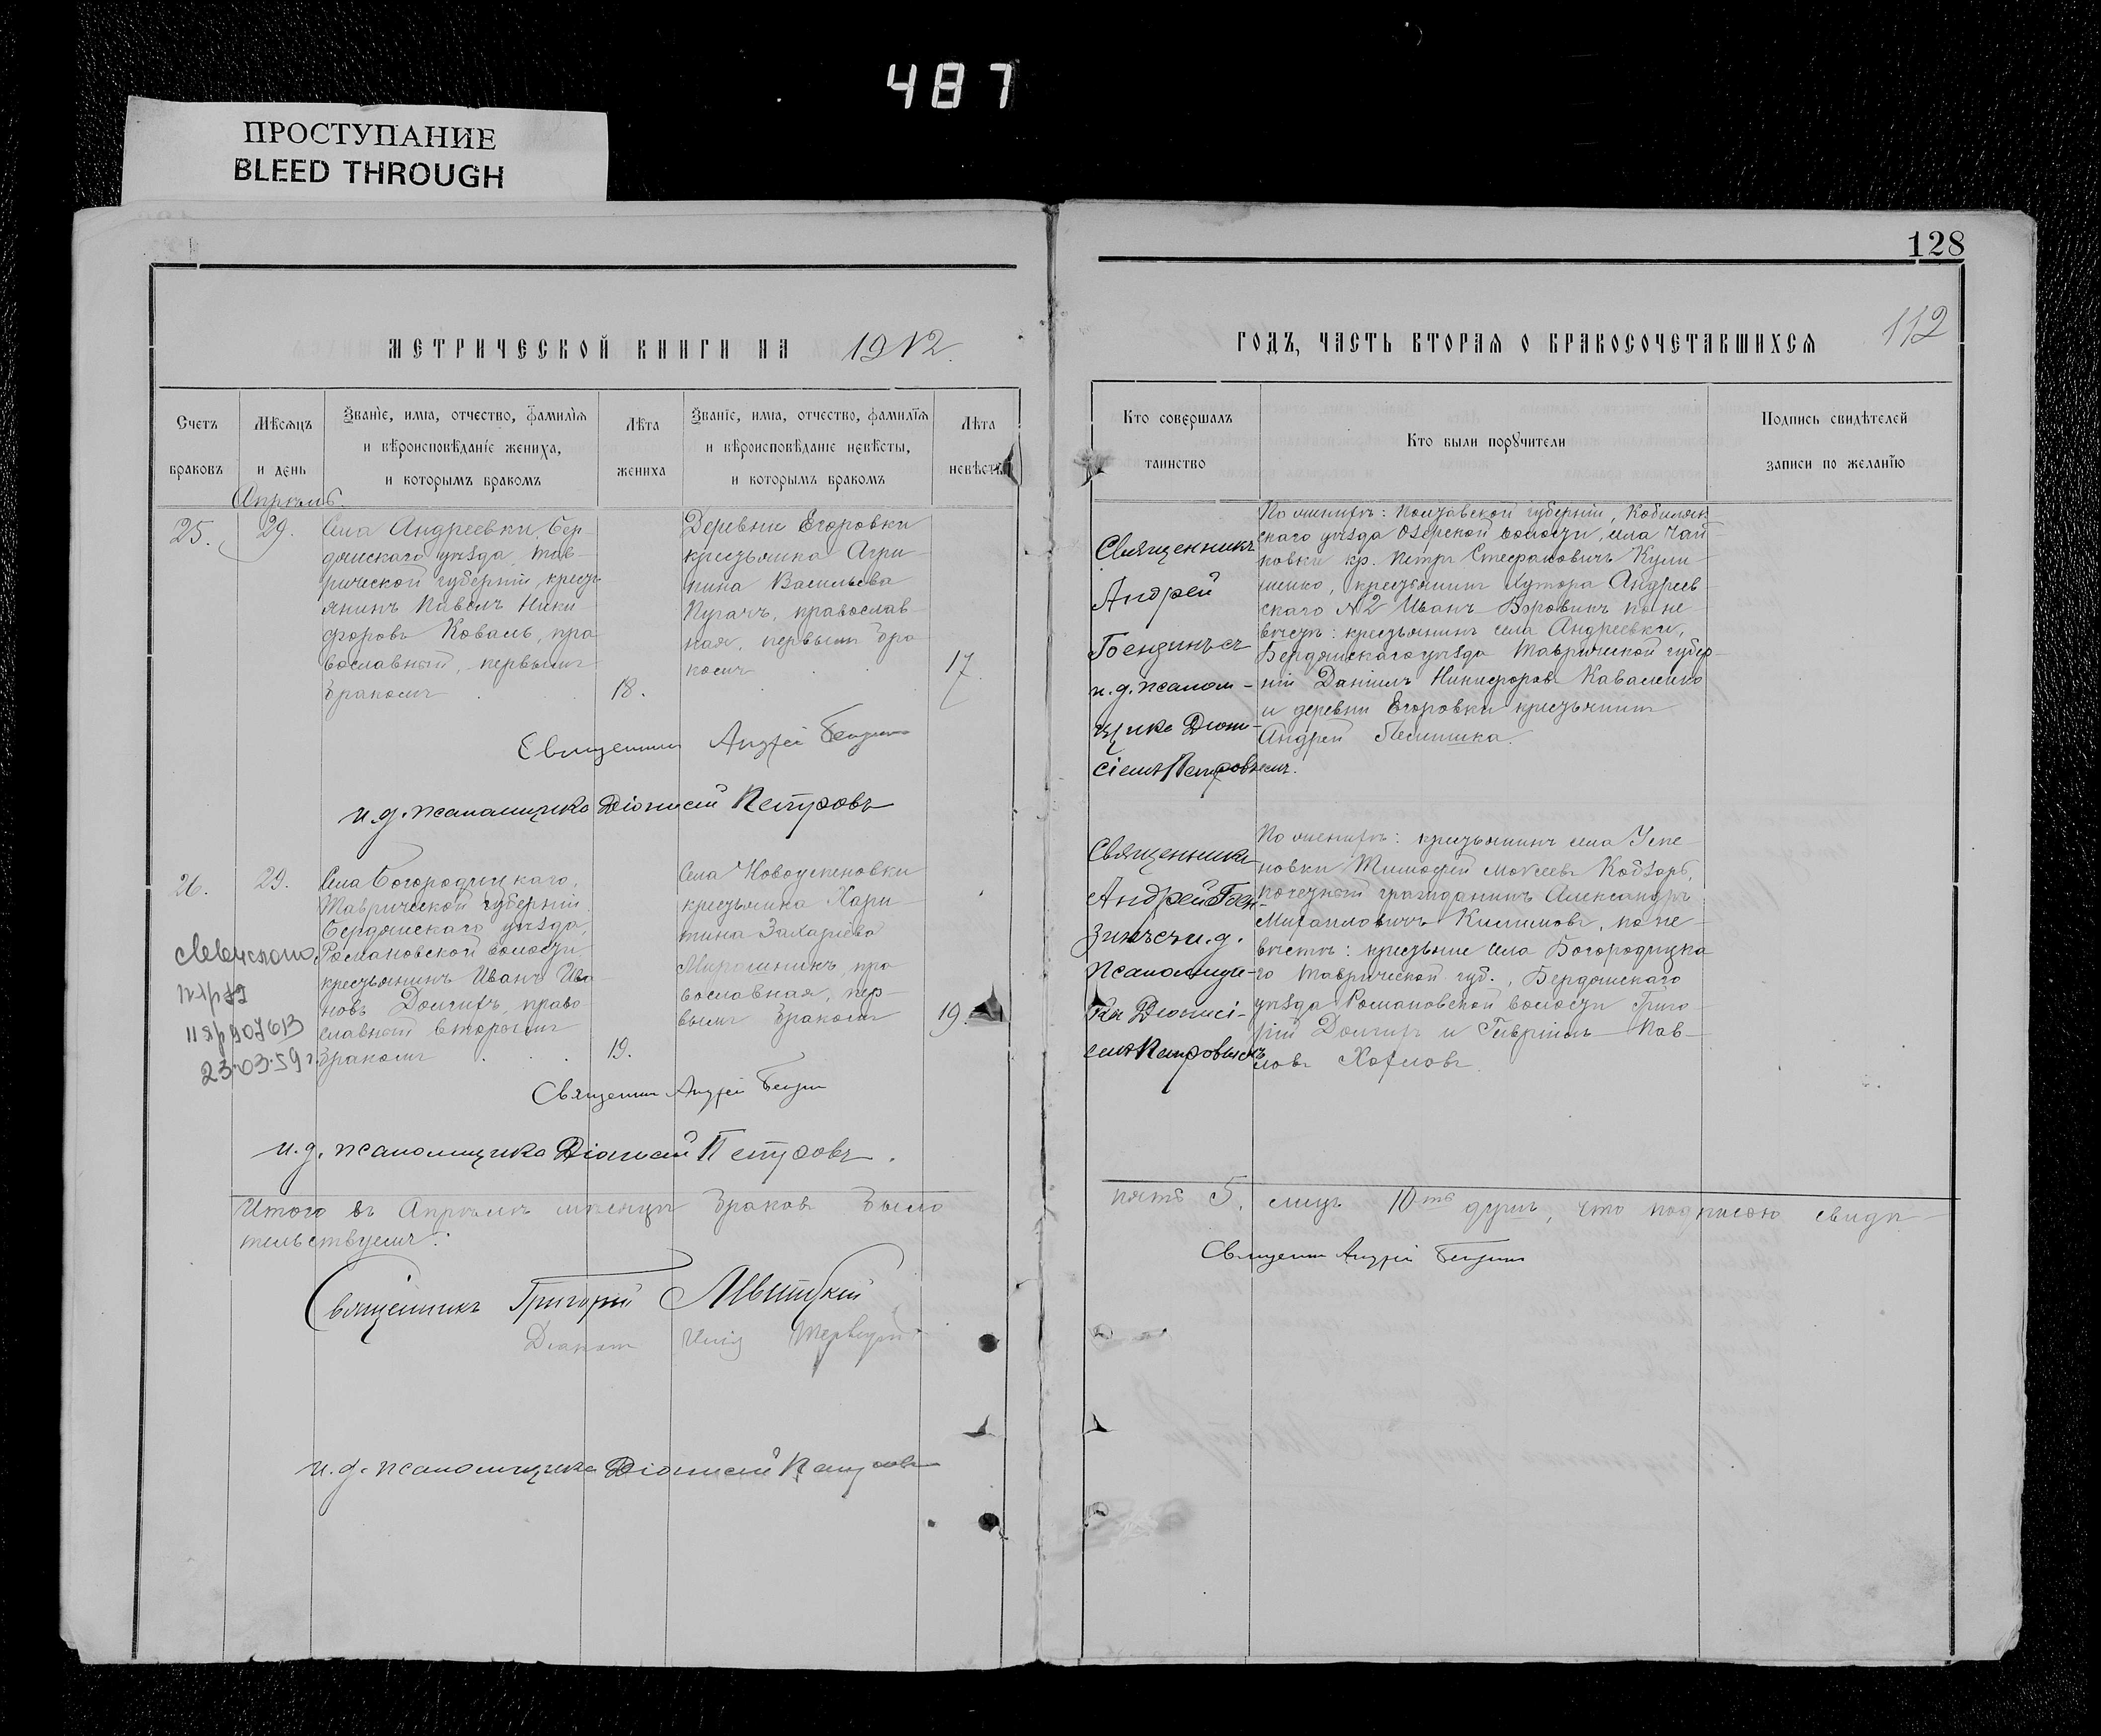 487
ПРОСТУПАНИЕ
BLEED THROUGH
128
112
МЕТРИЧЕСКОЙ КНИГИ НА 1912.
ГОДЪ, ЧАСТЬ ВТОРАЯ О БРАКОСОЧЕТАВШИХСЯ
Счетъ браковъ
Мѣсяцъ и день
Званіе, имя, отчество, фамилія и вѣроисповѣданіе жениха, и которымъ бракомъ
Лѣта жениха
Званіе, имя, отчество, фамилія и вѣроисповѣданіе невѣсты, и которымъ бракомъ
Лѣта невѣсты
Кто совершалъ таинство
Кто были поручители
Подпись свидѣтелей записи по желанію
Апрѣль
25.
29.
Села Андреевки, Бер-
дянскаго уѣзда, Тав-
рической губерніи, кресть
янинъ Павелъ Ники
форовъ Коваль, пра
вославный, первымъ
бракомъ
18.
Деревни Егоровки
крестьянка Агри-
пина Васильева
Пугачъ, православ
ная, первымъ бра
комъ
17.
Священникъ
Андрей
и.д. псалом-
щика Діони-
сіемъ Петровымъ.
По женихѣ: Полтавской губерніи, Кобеляк
скаго уѣзда Озерской волости, села Чай
ковки кр. Петръ Стефановичъ Кули
шенко, крестьянинъ хутора Андреев
скаго №2 Иванъ Боровикъ по не
вѣстѣ: крестьянинъ села Андреевки,
Бердянскаго уѣзда Таврической губер-
ніи Даніилъ Никифоровъ Коваленко
и деревни Егоровки крестьянинъ
Андрей
Священникъ Андрей
и.д. псаломщика Діонисій Петровъ
26.
29.
Села Богородицкаго,
Таврической губерніи
Бердянскаго уѣзда,
Романовской волости
крестьянинъ Иванъ Ива
новъ Долгихъ, право
славный вторымъ
бракомъ
19.
23.03.59 г.
Села Новоуспеновки
крестьянка Хари-
тина Захаріева
Мирошникъ, пра
вославная, пер-
вымъ бракомъ
19.
Священникъ
Андрей
и.д.
псаломщи-
ка Діонисі-
емъ Петровымъ
По женихѣ: крестьянинъ села Успе
новки Тимофей Моѵсеевъ Кобзарь,
почетный гражданинъ Александръ
Михаиловичъ Климовъ, по не-
вѣстѣ: крестьяне села Богородицка
го Таврической губ., Бердянскаго
уѣзда Романовской волости Григо-
рій Долгихъ и Гавріилъ Пав-
ловъ
Священникъ Андрей
и.д. псаломщика Діонисій Петровъ.
Итого въ Апрѣлѣ мѣсяцѣ браковъ было пять 5, лицъ 10ть душъ, что подписью свидѣ-
тельствуемъ:
Священникъ Андрей
Священникъ Григорій
Діаконъ Илія
и.д. псаломщика Діонисій Петровъ